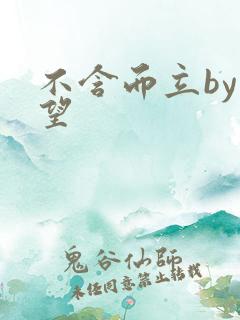 不舍而立by
望
鬼谷仙师
未经同意禁止转载